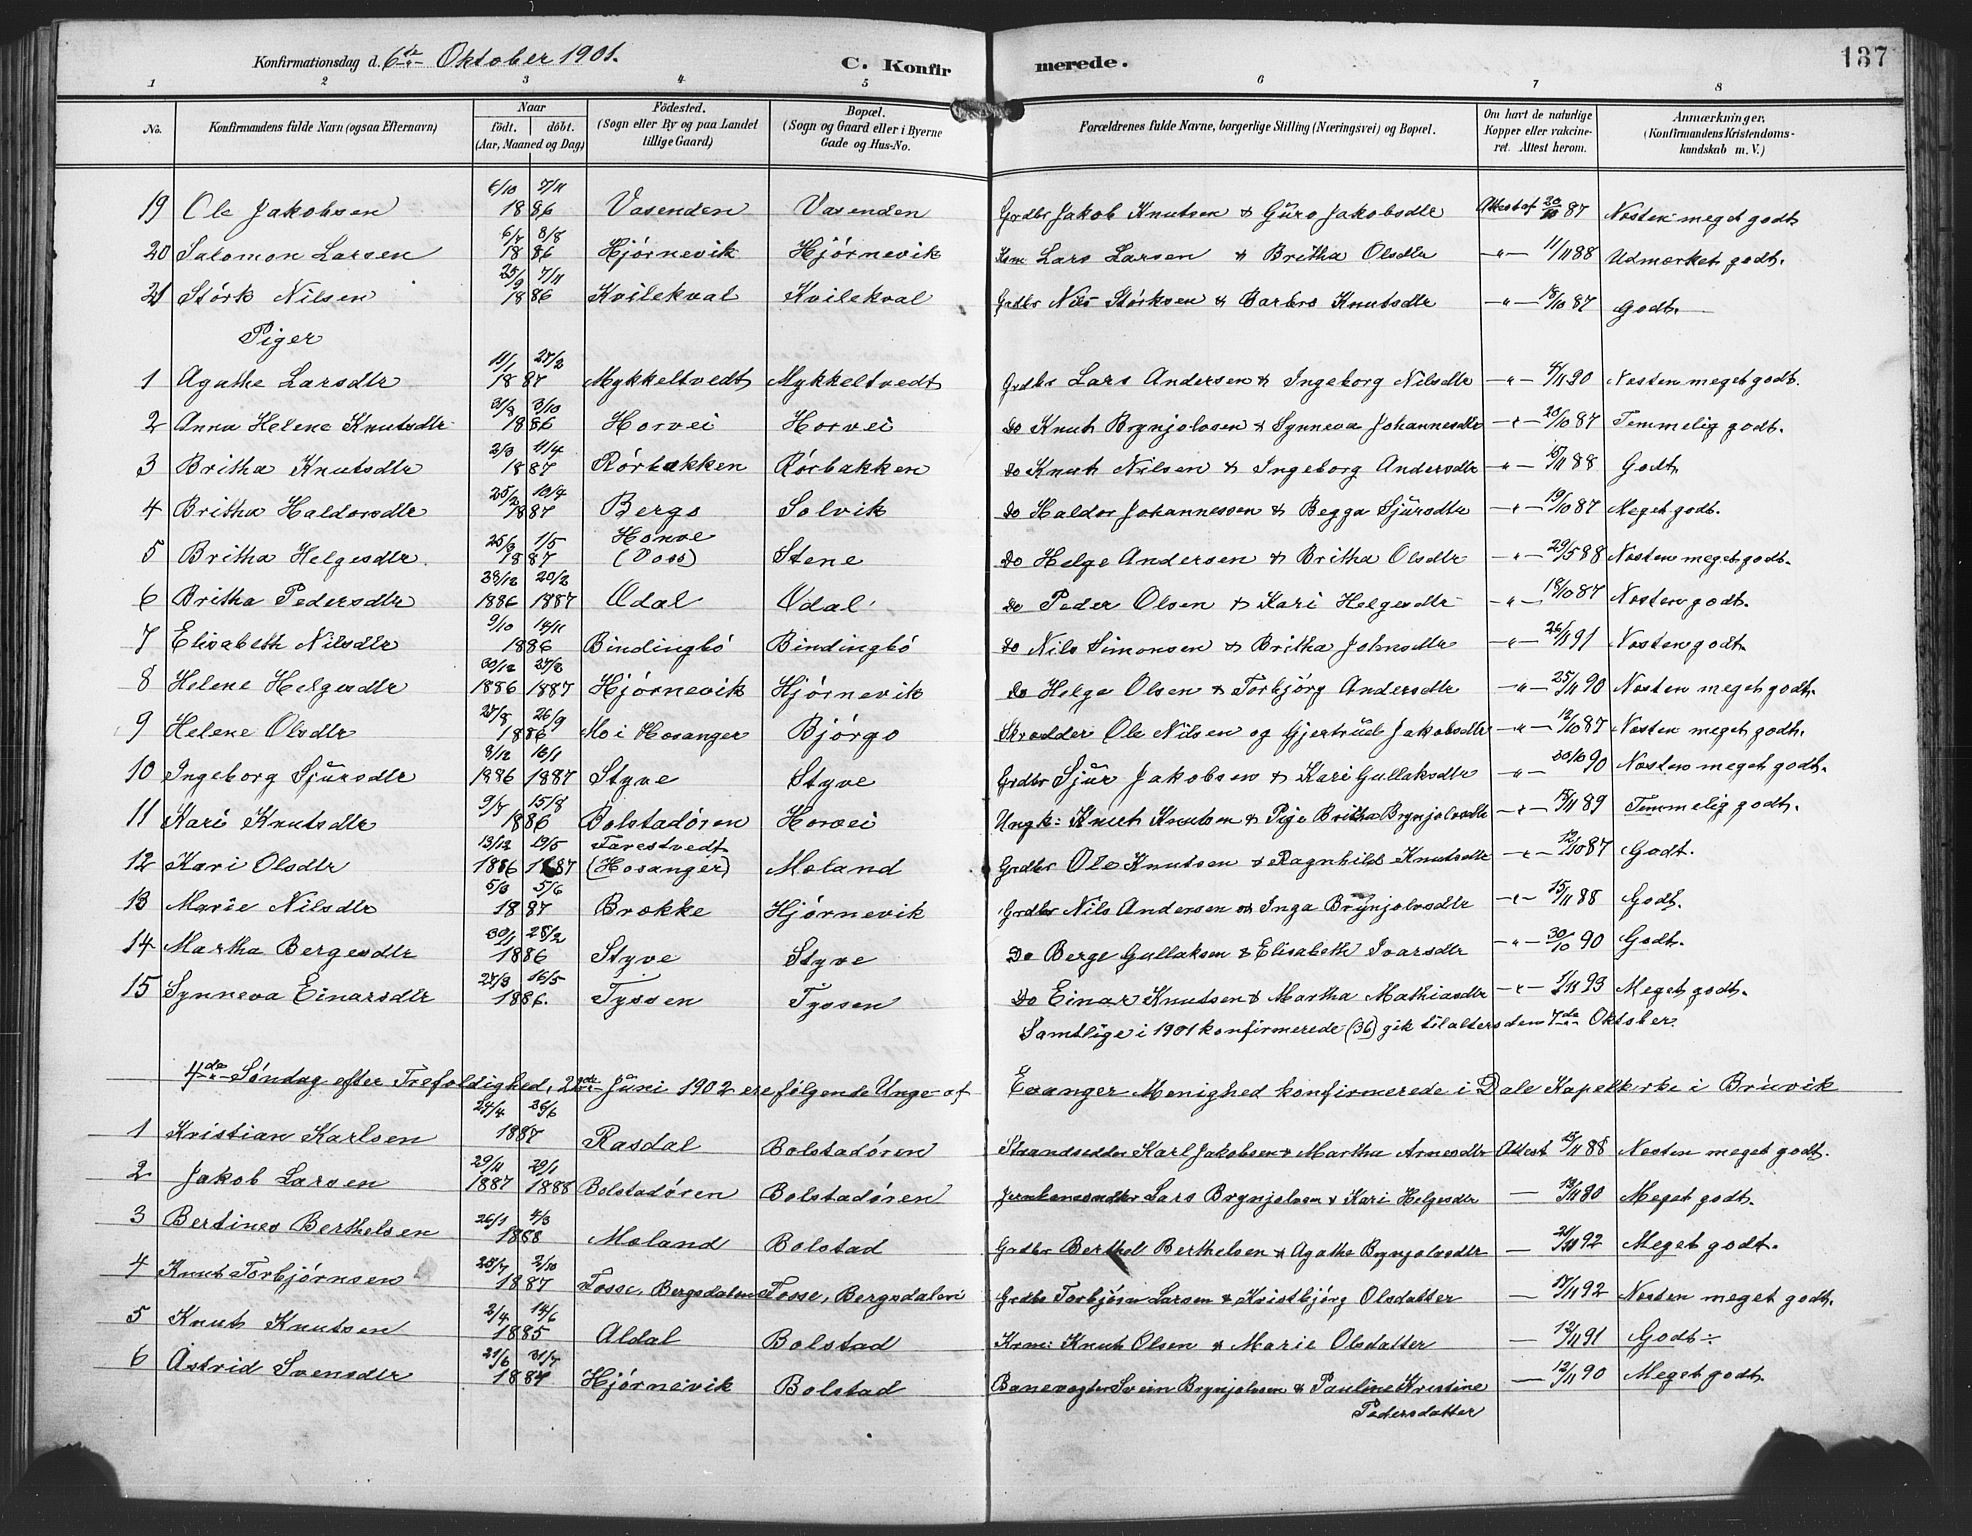 Konfirmationsdag d. 6te Oktober 1901. C. Konfirmerede. 137
1 2 3 4 5 6 7 8
No. Konfirmandens fulde Navn (ogsaa Efternavn) Naar födt. döbt. (Aar, Maaned og Dag) Födested. (Sogn eller By og paa Landet tillige Gaard) Bopæl. (Sogn og Gaard eller i Byerne Gade og Hus-No. Forældrenes fulde Navne, borgerlige Stilling (Næringsvei) og Bopæl. Om havt de naturlige Kopper eller vaccineret. Attest herom. Anmærkninger. (Konfirmandens Kristendomskundskab m. V.)
19 Ole Jakobsen 6/10 7/11 1886 Vasenden Vasenden Grdbr Jakob Knutsen & Guro Jakobsdtr Attest af 20/10 87 Næsten meget godt
20 Salomon Larsen 6/7 8/8 1886 Hjörnevik Hjörnevik Lars Larsen & Britha Olsdtr -"- 11/11 88 Udmærket godt.
21 Störk Nilsen 25/9 7/11 1886 Kvilekval Kvilekval Grdbr Nils Störksen & Barbro Knutsdtr -"- 18/10 87 Godt.
Piger
1 Agathe Larsdtr 11/1 27/2 1887 Mykkeltvedt Mykkeltvedt Grdbr Lars Andersen & Ingeborg Nilsdtr -"- 90 Næsten meget godt.
2 Anna Helene Knutsdtr 31/8 3/10 1886 Horvei Horvei Do Knut Brynjolvsen & Synneva Johannesdtr -"- 20/10 87 Temmelig godt.
3 Britha Knutsdtr 2/3 11/4 1887 Rörbakken Rörbakken Do Knut Nilsen & Ingeborg Andersdtr -"- 88 Godt
4 Britha Haldorsdtr 25/2 10/4 1887 Berge Solvik Do Haldor Johannessen & Begga Sjursdtr -"- 19/10 87 Meget godt.
5 Britha Helgesdtr. 25/3 1/5 1887 Honve (Voss) Stene Do Helge Andersen & Britha Olsdtr -"- 29/5 88 Næsten meget godt.
6 Britha Pedersdtr 28/12 20/2 1886 1887 Odal Odal Do Peder Olsen & Kari Helgesdtr -"- 18/10 87 Næsten godt.
7 Elisabeth Nilsdtr 9/10 14/11 1886 Bindingbö Bindingbö Do Nils Simonsen & Britha Johnsdtr -"- 26/11 91 Næsten godt
8 Helene Helgesdtr 30/12 27/2 1886 1887 Hjörnevik Hjörnevik Do Helge Olsen & Torbjörg Andersdtr -"- 25/11 90 Næsten meget godt.
9 Helene Olsdtr 27/8 26/9 1886 Mo i Hosanger Björgo Skrædder Ole Nilsen og Gjertrud Jakobsdtr -"- 12/10 87 Næsten meget godt.
10 Ingeborg Sjursdtr 8/12 16/1 1886 1887 Styve Styve Grdbr Sjur Jakobsen & Kari Gullaksdtr -"- 30/10 90 Næsten meget godt.
11 Kari Knutsdtr 9/7 15/8 1886 Bolstadören Horvei Ungk: Knut Knutsen & Pige Britha Brynjolvsdtr -"- 89 Temmelig godt.
12 Kari Olsdtr 13/12 19/5 1886 1887 Tarestvedt (Hosanger) Moland Grdbr Ole Knutsen & Ragnhild Knutsdtr -"- 12/10 87 Godt.
13 Marie Nilsdtr 5/3 5/6 1887 Brække Hjörnevik Grdbr Nils Andersen & Inga Brynjolvsdtr -"- 15/11 88 Godt.
14 Martha Bergesdtr 30/1 28/2 1886 Styve Styve Do Berge Gullaksen & Elisabeth Ivarsdtr -"- 30/10 90 Godt.
15 Synneva Einarsdtr 27/3 16/5 1886. Tyssen Tyssen Do Einar Knutsen & Martha Mathiasdtr -"- 1/11 93 Meget godt.
Samtlige i 1901 konfirmerede (36) gik til alters den 7de Oktober.
4de Söndag efter Trefoldighed, Juni 1902 ere fölgende Unge af Evanger Menighed konfirmerede i Dale Kapelkirke i Bruvik
1 Kristian Karlsen 24/4 26/6 1887 Rasdal Bolstadören Strandsidder Karl Jakobsen & Martha Arnesdtr Attest 88 Næsten meget godt.
2 Jakob Larsen 29/11 29/1 1887 1888 Bolstadören Bolstadören Lars Brynjolvsen & Kari Helgesdtr — 80 Meget godt.
3 Bertines Berthelsen 26/1 4/3 1888 Moland Bolstad Grdbr Berthel Berthelsen & Agathe Brynjolvsdtr — 92 Meget godt.
4 Knut Torbjörnsen 28/7 2/10 1887 Fosse, Bergsdalen Fosse, Bergsdalen Grdbr Torbjörn Larsen & Kristbjörg Olsdatter — 17/11 92 Næsten meget godt.
5 Knut Knutsen 2/4 14/6 1885 Aldal Bolstad Knut Olsen & Marie Olsdatter — 12/11 91 Godt
6 Astrid Svensdtr 21/6 31/7 1887 Hjörnevik Bolstad Banevogter Svein Brynjolvsen & Pauline Kristine Pedersdatter — 12/11 90 Meget godt.